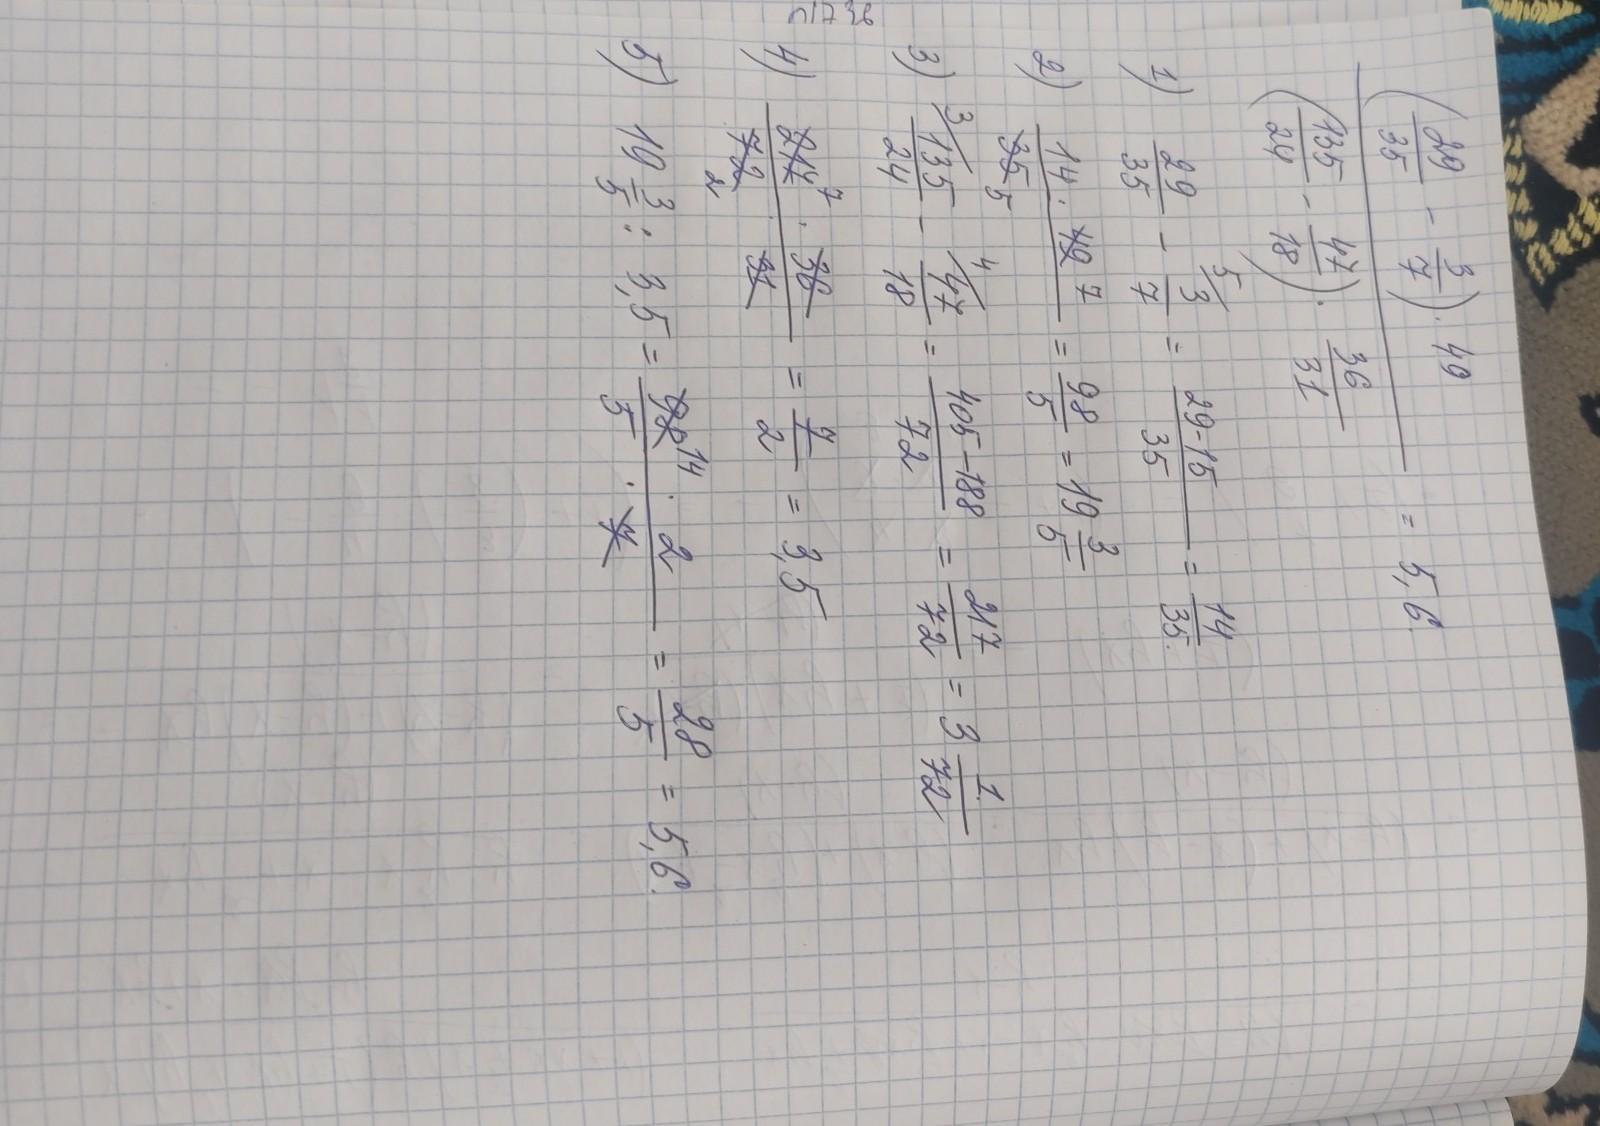 (29/35 - 3/7) · 49
(135/24 - 47/18) · 36/31 = 5,6.
1) 29/35 - 3/7 = 29-15/35 = 14/35.
2) 14 · 49/35 = 98/5 = 19 3/5
3) 135/24 - 47/18 = 405-188/72 = 217/72 = 3 1/72
4) 217 · 36/72 · 31 = 7/2 = 3,5
5) 19 3/5 : 3,5 = 98 · 2/5 · 7 = 28/5 = 5,6.